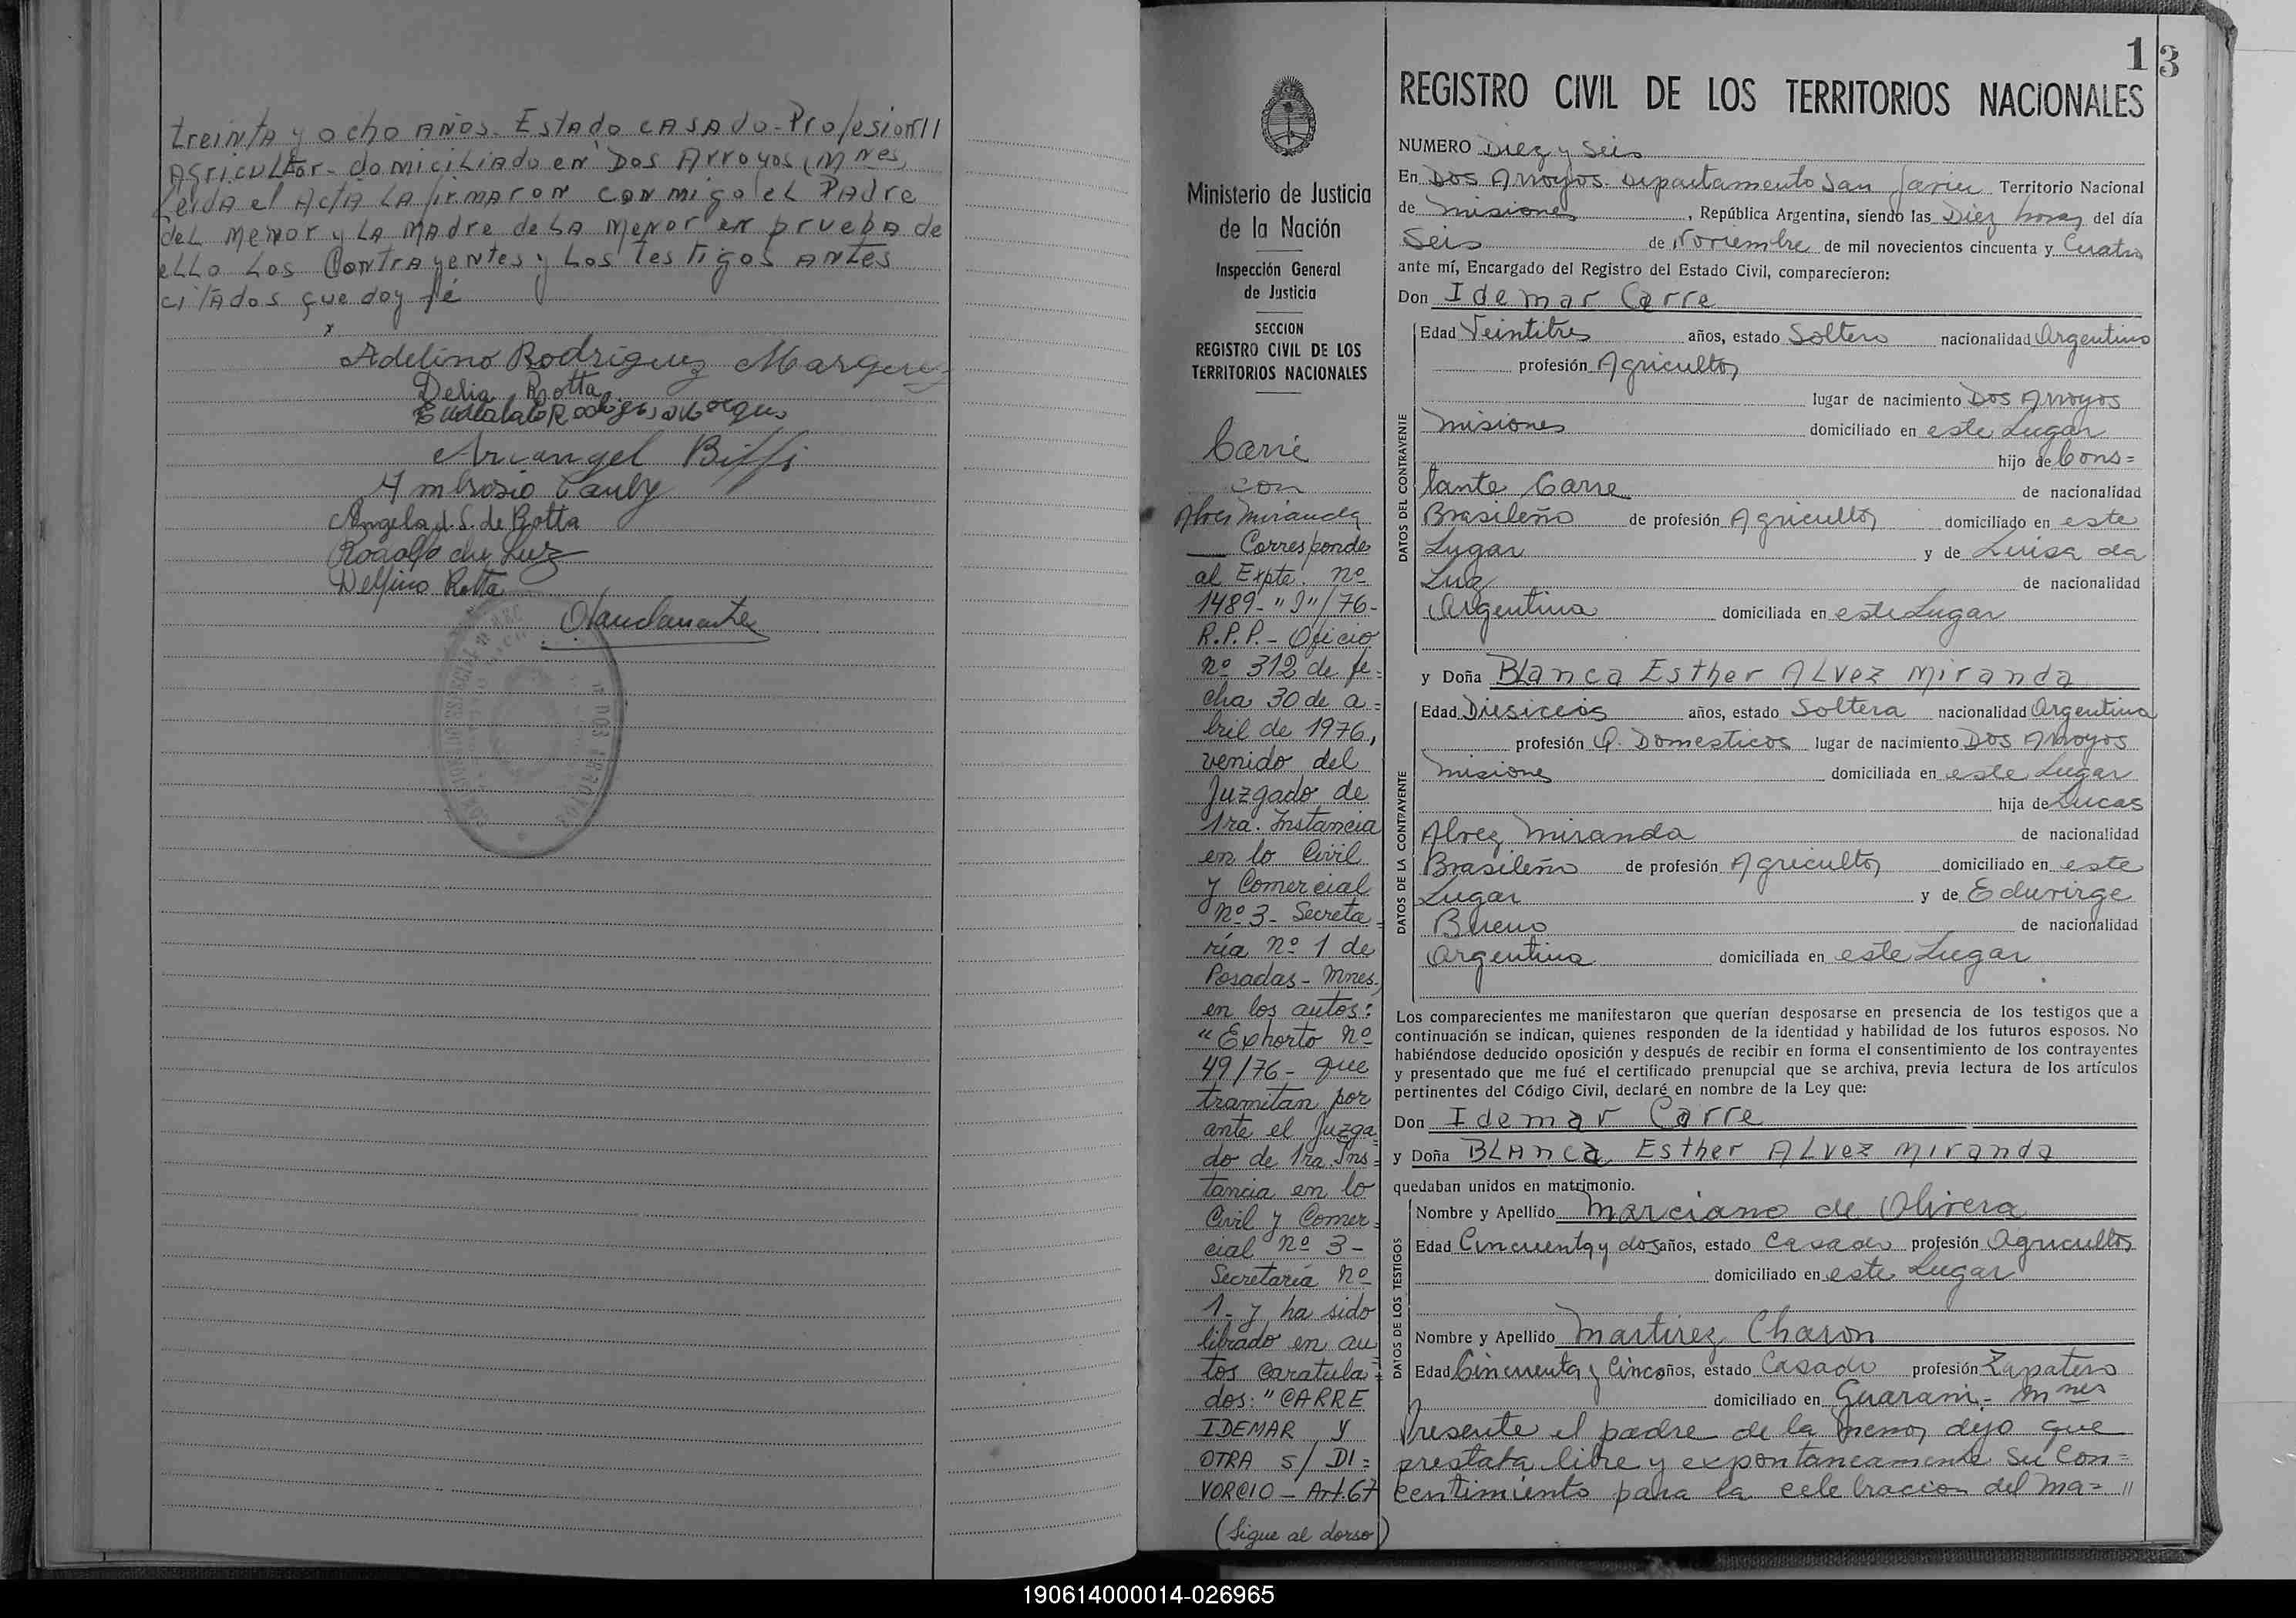 treinta y ocho años. Estado casado - Profesion //
Agricultor - domiciliado en Dos Arroyos (Mnes)
Leida el Acta la firmaron conmigo el Padre
del menor y la madre de la menor en prueba de
ello los Contrayentes y los testigos antes
citados que doy fé
Adelino Rodriguez Marquez
Delia Rotta
Arcangel Biffi
Ambrosio Pauly
Angela d. S. de Rotta
Rodolfo da Luz
Delfino Rotta
13
REGISTRO CIVIL DE LOS TERRITORIOS NACIONALES
Ministerio de Justicia
de la Nación
Inspección General
de Justicia
SECCION
REGISTRO CIVIL DE LOS
TERRITORIOS NACIONALES
Carré
con
Alves Miranda
Corresponde
al Expte. nº
1489-"I"/76-
R.P.P. - Oficio
nº 312 de fe=
cha 30 de a=
bril de 1976,
venido del
Juzgado de
1ra. Instancia
en lo Civil
y Comercial
nº 3 - Secreta
ría nº 1 de
Posadas - Mnes.,
en los autos:
"Exhorto nº
49/76 - que
tramitan por
ante el Juzga
do de 1ra. Ins=
tancia en lo
Civil y Comer=
cial nº 3 -
Secretaría nº
1 - y ha sido
librado en au
tos caratula=
dos: "CARRE
IDEMAR Y
OTRA S/ DI=
VORCIO - Art. 67
(Sigue al dorso)
NUMERO Diez y Seis
En Dos Arroyos. Departamento San Javier Territorio Nacional
de Misiones, República Argentina, siendo las Diez horas del día
Seis de Noviembre de mil novecientos cincuenta y Cuatro
ante mí, Encargado del Registro del Estado Civil, comparecieron:
Don Idemar Carre
DATOS DEL CONTRAYENTE
Edad Veintitres años, estado Soltero nacionalidad Argentino
profesión Agricultor
lugar de nacimiento Dos Arroyos
Misiones domiciliado en este Lugar
hijo de Cons=
tante Carre de nacionalidad
Brasileño de profesión Agricultor domiciliado en este
Lugar y de Luisa da
Luz de nacionalidad
Argentina domiciliada en este Lugar
y Doña Blanca Esther Alvez Miranda
DATOS DE LA CONTRAYENTE
Edad Diesiceis años, estado Soltera nacionalidad Argentina
profesión Q. Domesticos lugar de nacimiento Dos Arroyos
Misiones domiciliada en este Lugar
hija de Lucas
Alvez Miranda de nacionalidad
Brasileño de profesión Agricultor domiciliado en este
Lugar y de Eduvirge
Bueno de nacionalidad
Argentina domiciliada en este Lugar
Los comparecientes me manifestaron que querían desposarse en presencia de los testigos que a
continuación se indican, quienes responden de la identidad y habilidad de los futuros esposos. No
habiéndose deducido oposición y después de recibir en forma el consentimiento de los contrayentes
y presentado que me fué el certificado prenupcial que se archiva, previa lectura de los artículos
pertinentes del Código Civil, declaré en nombre de la Ley que:
Don Idemar Carre
y Doña Blanca Esther Alvez Miranda
quedaban unidos en matrimonio.
DATOS DE LOS TESTIGOS
Nombre y Apellido Marciano de Olivera
Edad Cincuenta y dos años, estado Casado profesión Agricultor
domiciliado en este Lugar
Nombre y Apellido Martirez Charon
Edad Cincuenta y Cinco años, estado Casado profesión Zapatero
domiciliado en Guarani - Mnes
Presente el padre de la menor dijo que
prestaba libre y expontaneamente su Con=
centimiento para la celebracion del ma= //
190614000014-026965